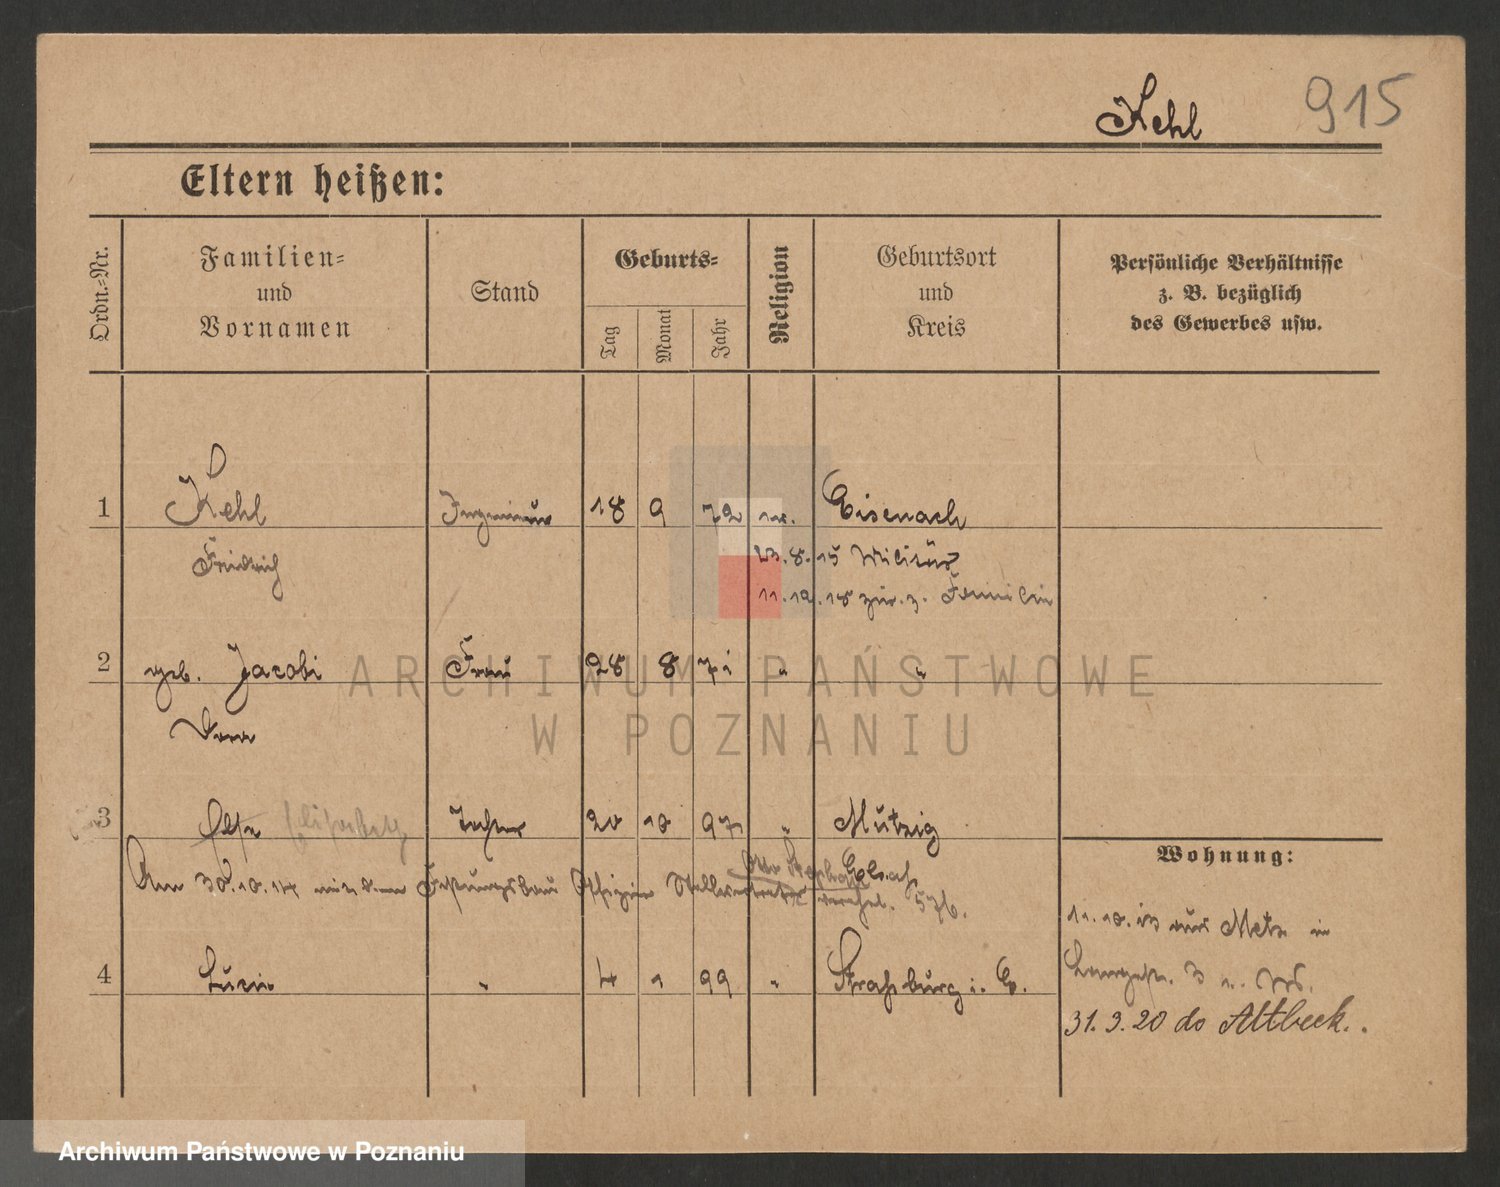 Kehl 915
Eltern heißen:
Ordn.-Nr.
Familien-
und
Vornamen
Stand
Geburts-
Tag
Monat
Jahr
Religion
Geburtsort
und
Kreis
Persönliche Verhältnisse
z. B. bezüglich
des Gewerbes usw.
1 Kehl Ingenieur 18 9 72 Eisenach
Friedrich 23.8.15 Militär
11.12.18 zur. z. Familie
2 geb. Jacobi Frau 28 8 71 " "
3 Else Elisabeth Tochter 20 10 97 " Mutzig
Elsaß
Am 30.10.14 mit dem Festungsbau Offizier Stellvertreter verehel. 576.
Wohnung:
11.10.13 aus Metz in
4 Lucie " 4 1 99 " Straßburg i. E.
31.3.20 do Altbeck.
ARCHIWUM PAŃSTWOWE
W POZNANIU
Archiwum Państwowe w Poznaniu